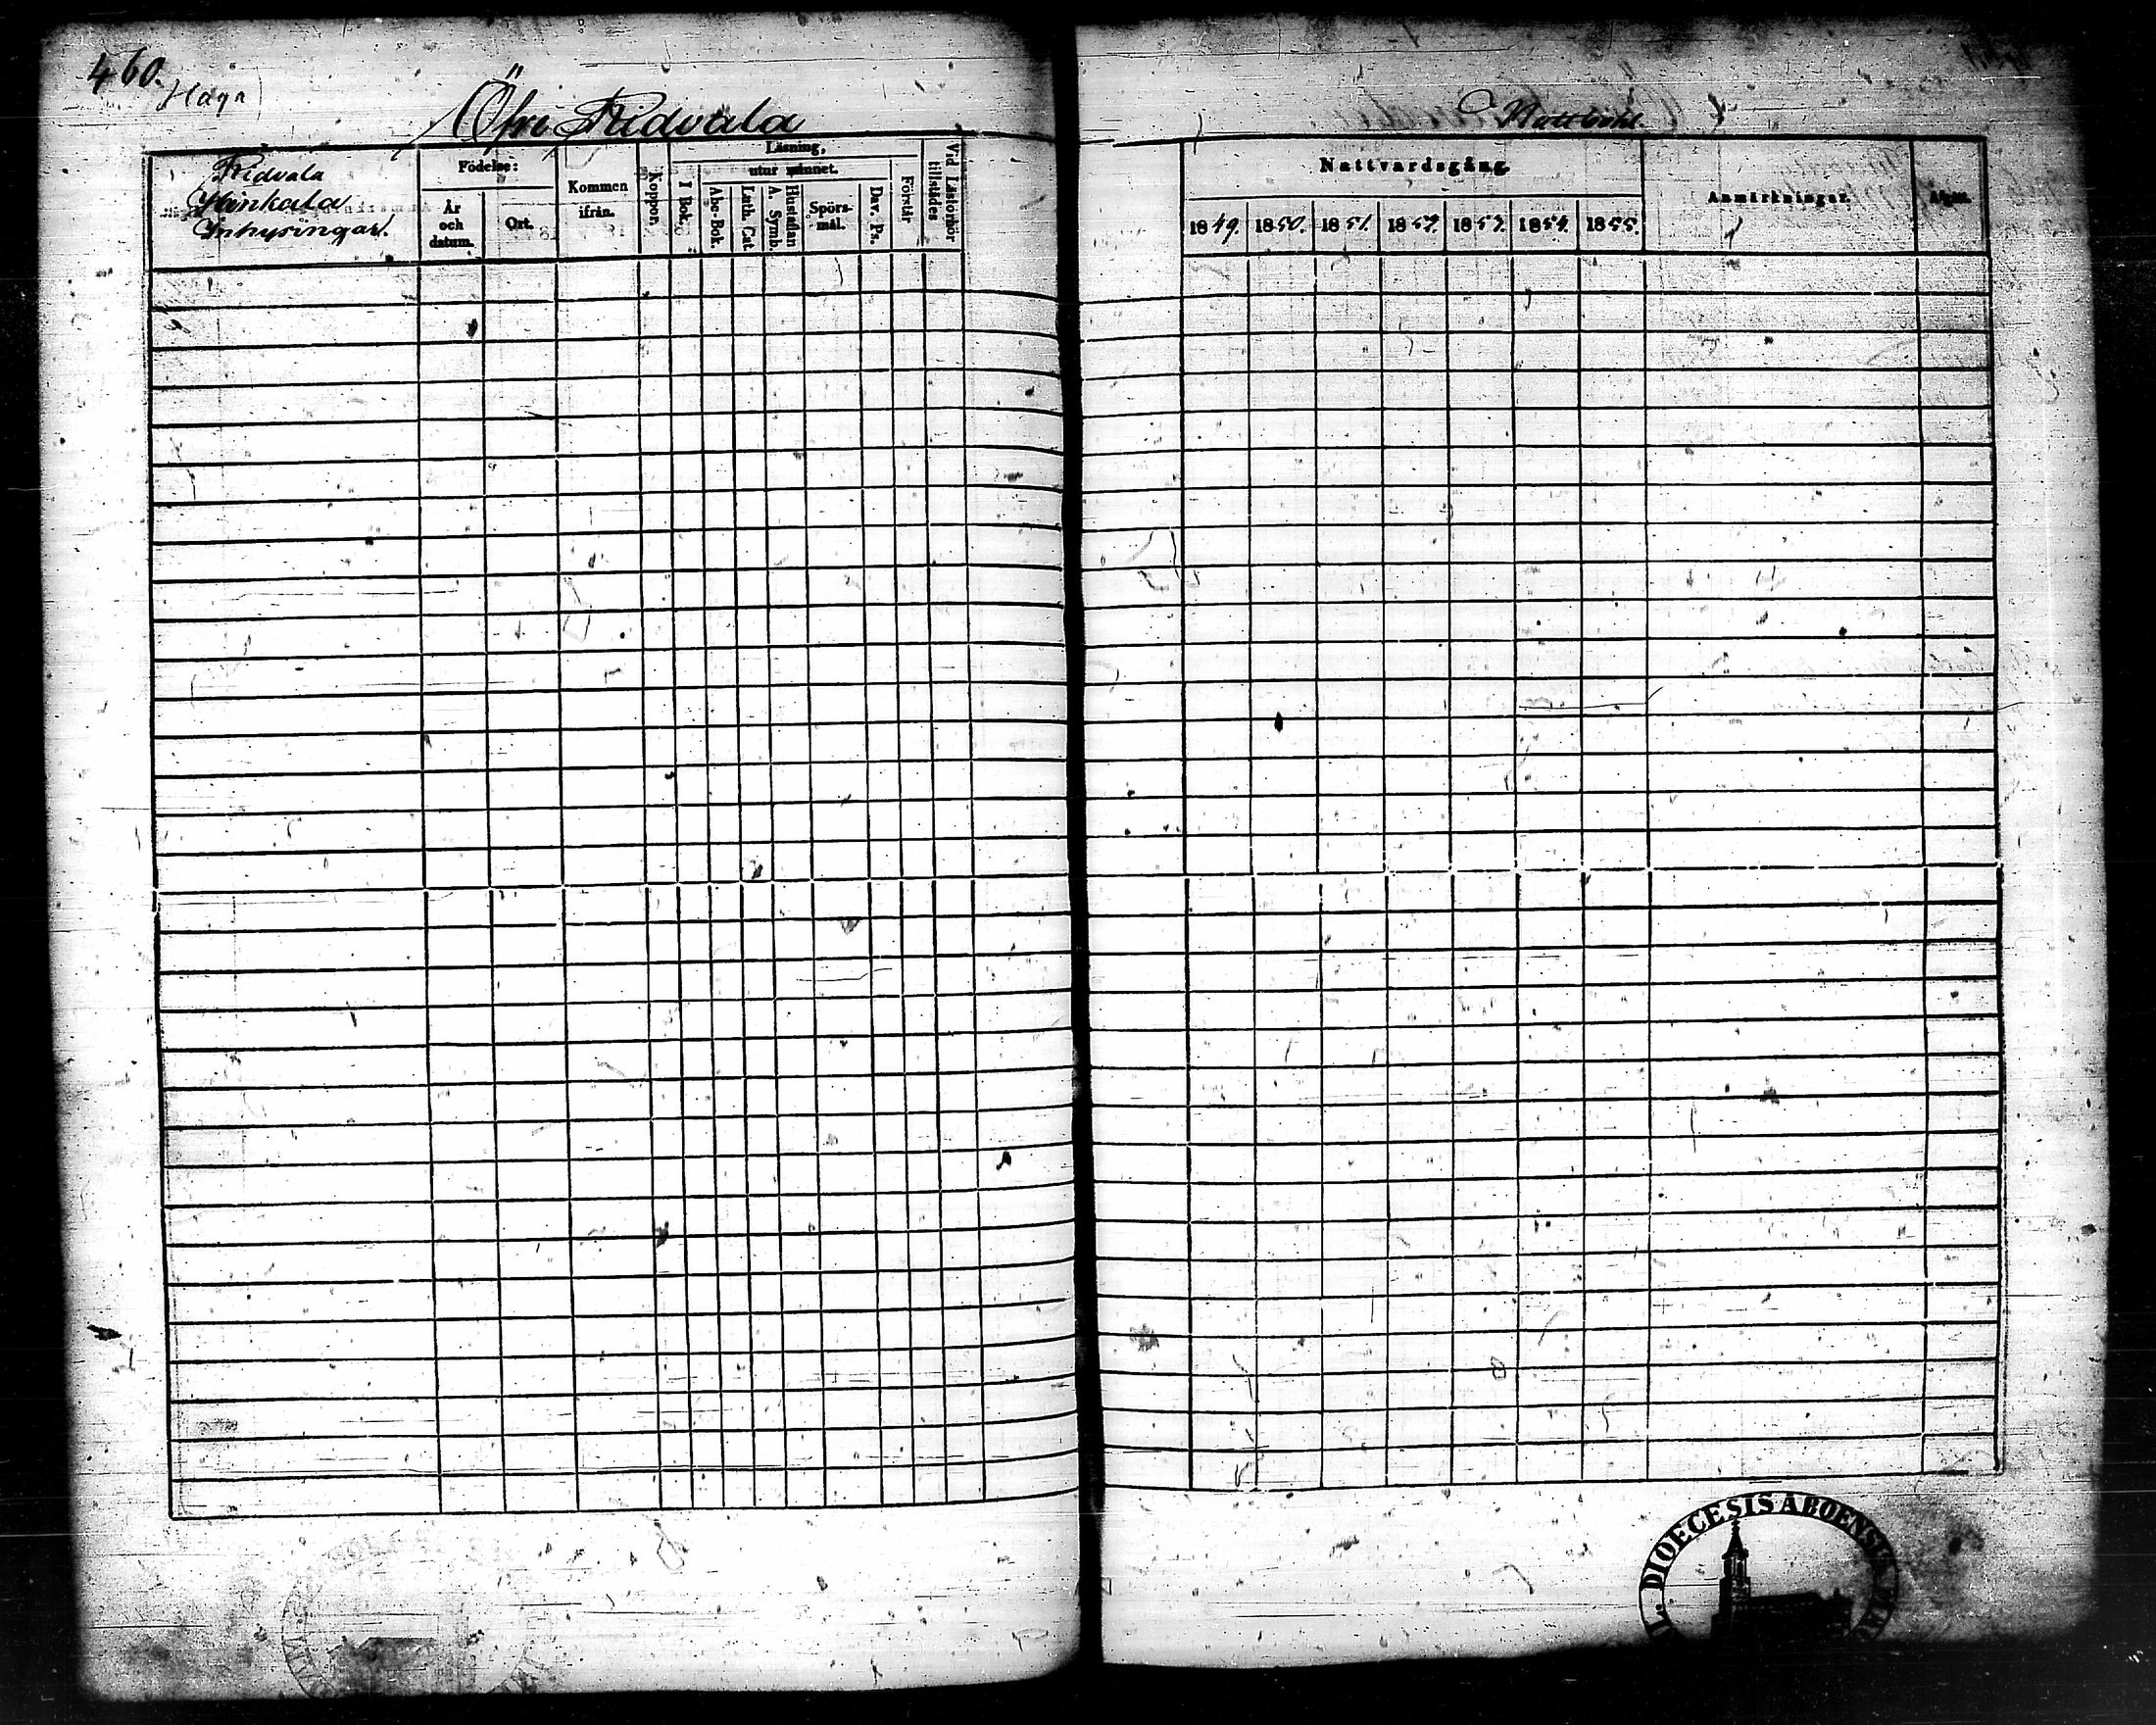 460.
Haga
Öfre Ridvala
Ridvala
Yänkala
Inhysingar.
Födelse:
År och datum.
Ort.
Kommen ifrån.
Koppor.
Läsning,
I Bok.
utur minnet.
Abc-Bok.
Luth. Cat.
Hustaflan A. Symb.
Spörs-mål.
Dav. Ps.
Förstår
Vid Läseförhör tillstädes
Nattvardsgång.
1849. 1850. 1851. 1852. 1853. 1854. 1855.
Anmärkningar.
DIOECESIS ABOENSIS